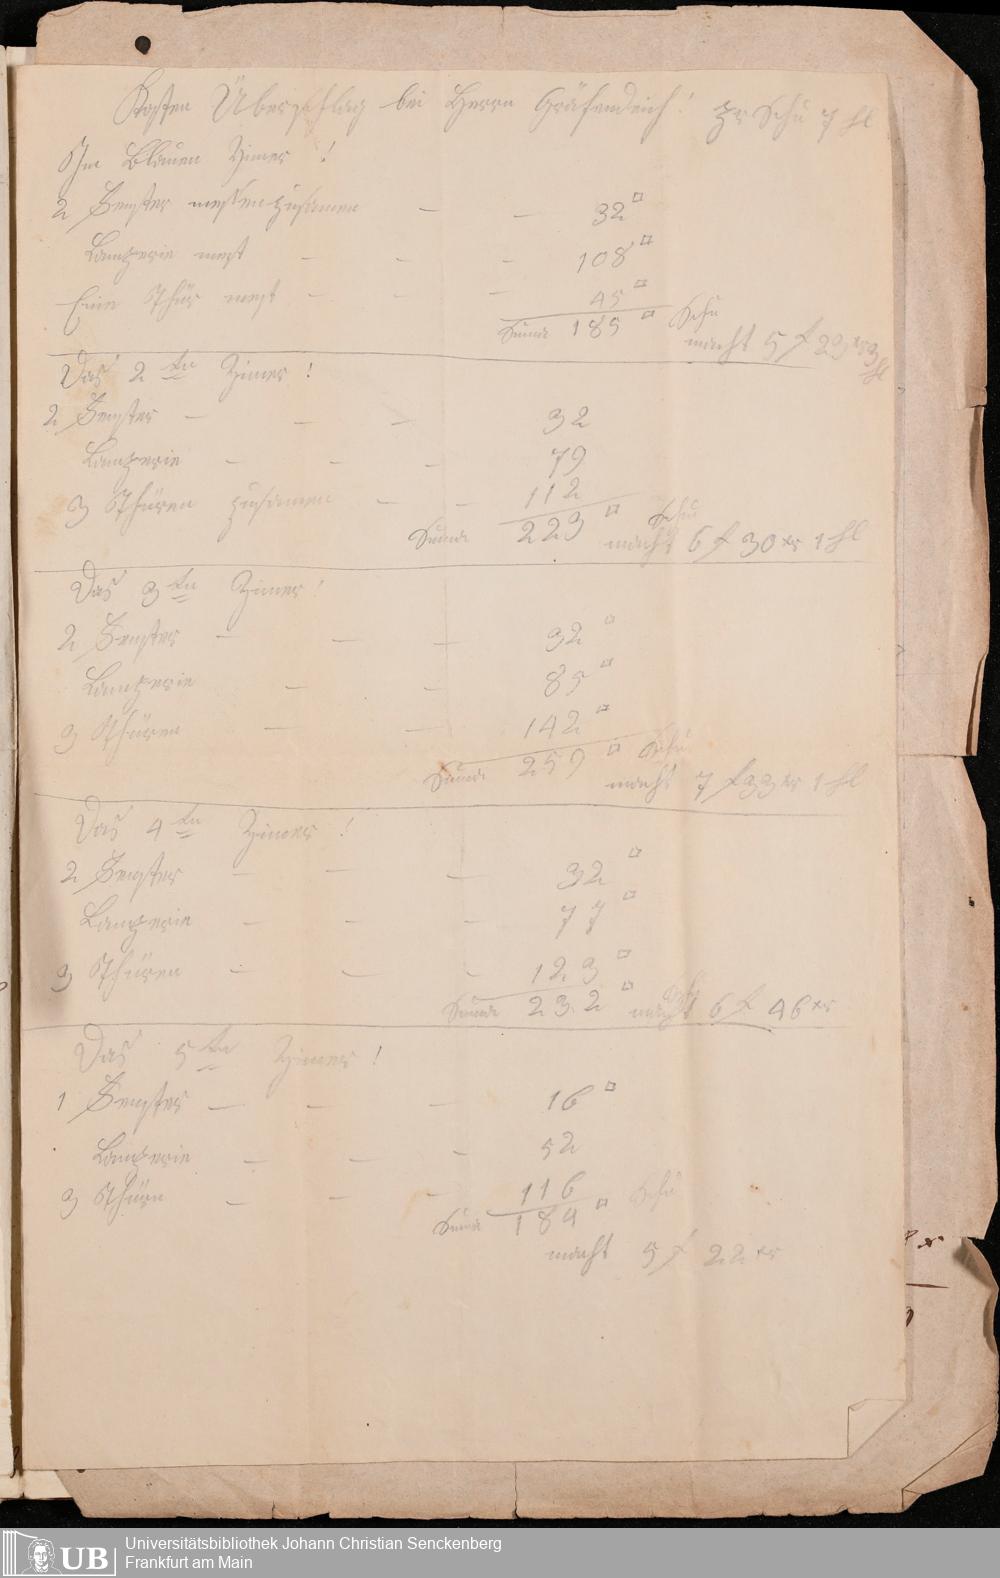 Kosten Überschlag bei Herrn Gräfendeich! pr Schu 7 hl
Im Blauen Zimer!
2 Fenster messen zusamen — — 32 □
Lamperie mest — — — 108 □
Eine Thür mest — — — 45 □
Suma 185 □ Schu
macht 5 f 23 xr 3 hl
Das 2 tn Zimer!
2 Fenster — — — 32
Lamperie — — — 79
3 Thüren zusamen — — 112
Suma 223 □ Schu
macht 6 f 30 xr 1 hl
Das 3 tn Zimer!
2 Fenster — — — 32 □
Lamperie — — 85 □
3 Thüren — — 142 □
Suma 259 □ Schu
macht 7 f 33 xr 1 hl
Das 4 tn Zimer!
2 Fenster — — — 32 □
Lamperie — — — 77 □
3 Thüren — — — 123 □
Suma 232 □ Schu
macht 6 f 46 xr
Das 5 tn Zimer!
1 Fenster — — — 16 □
Lamperie — — — 52
3 Thürn — — — 116
Suma 184 □ Schu
macht 5 f 22 xr
UB
Universitätsbibliothek Johann Christian Senckenberg
Frankfurt am Main